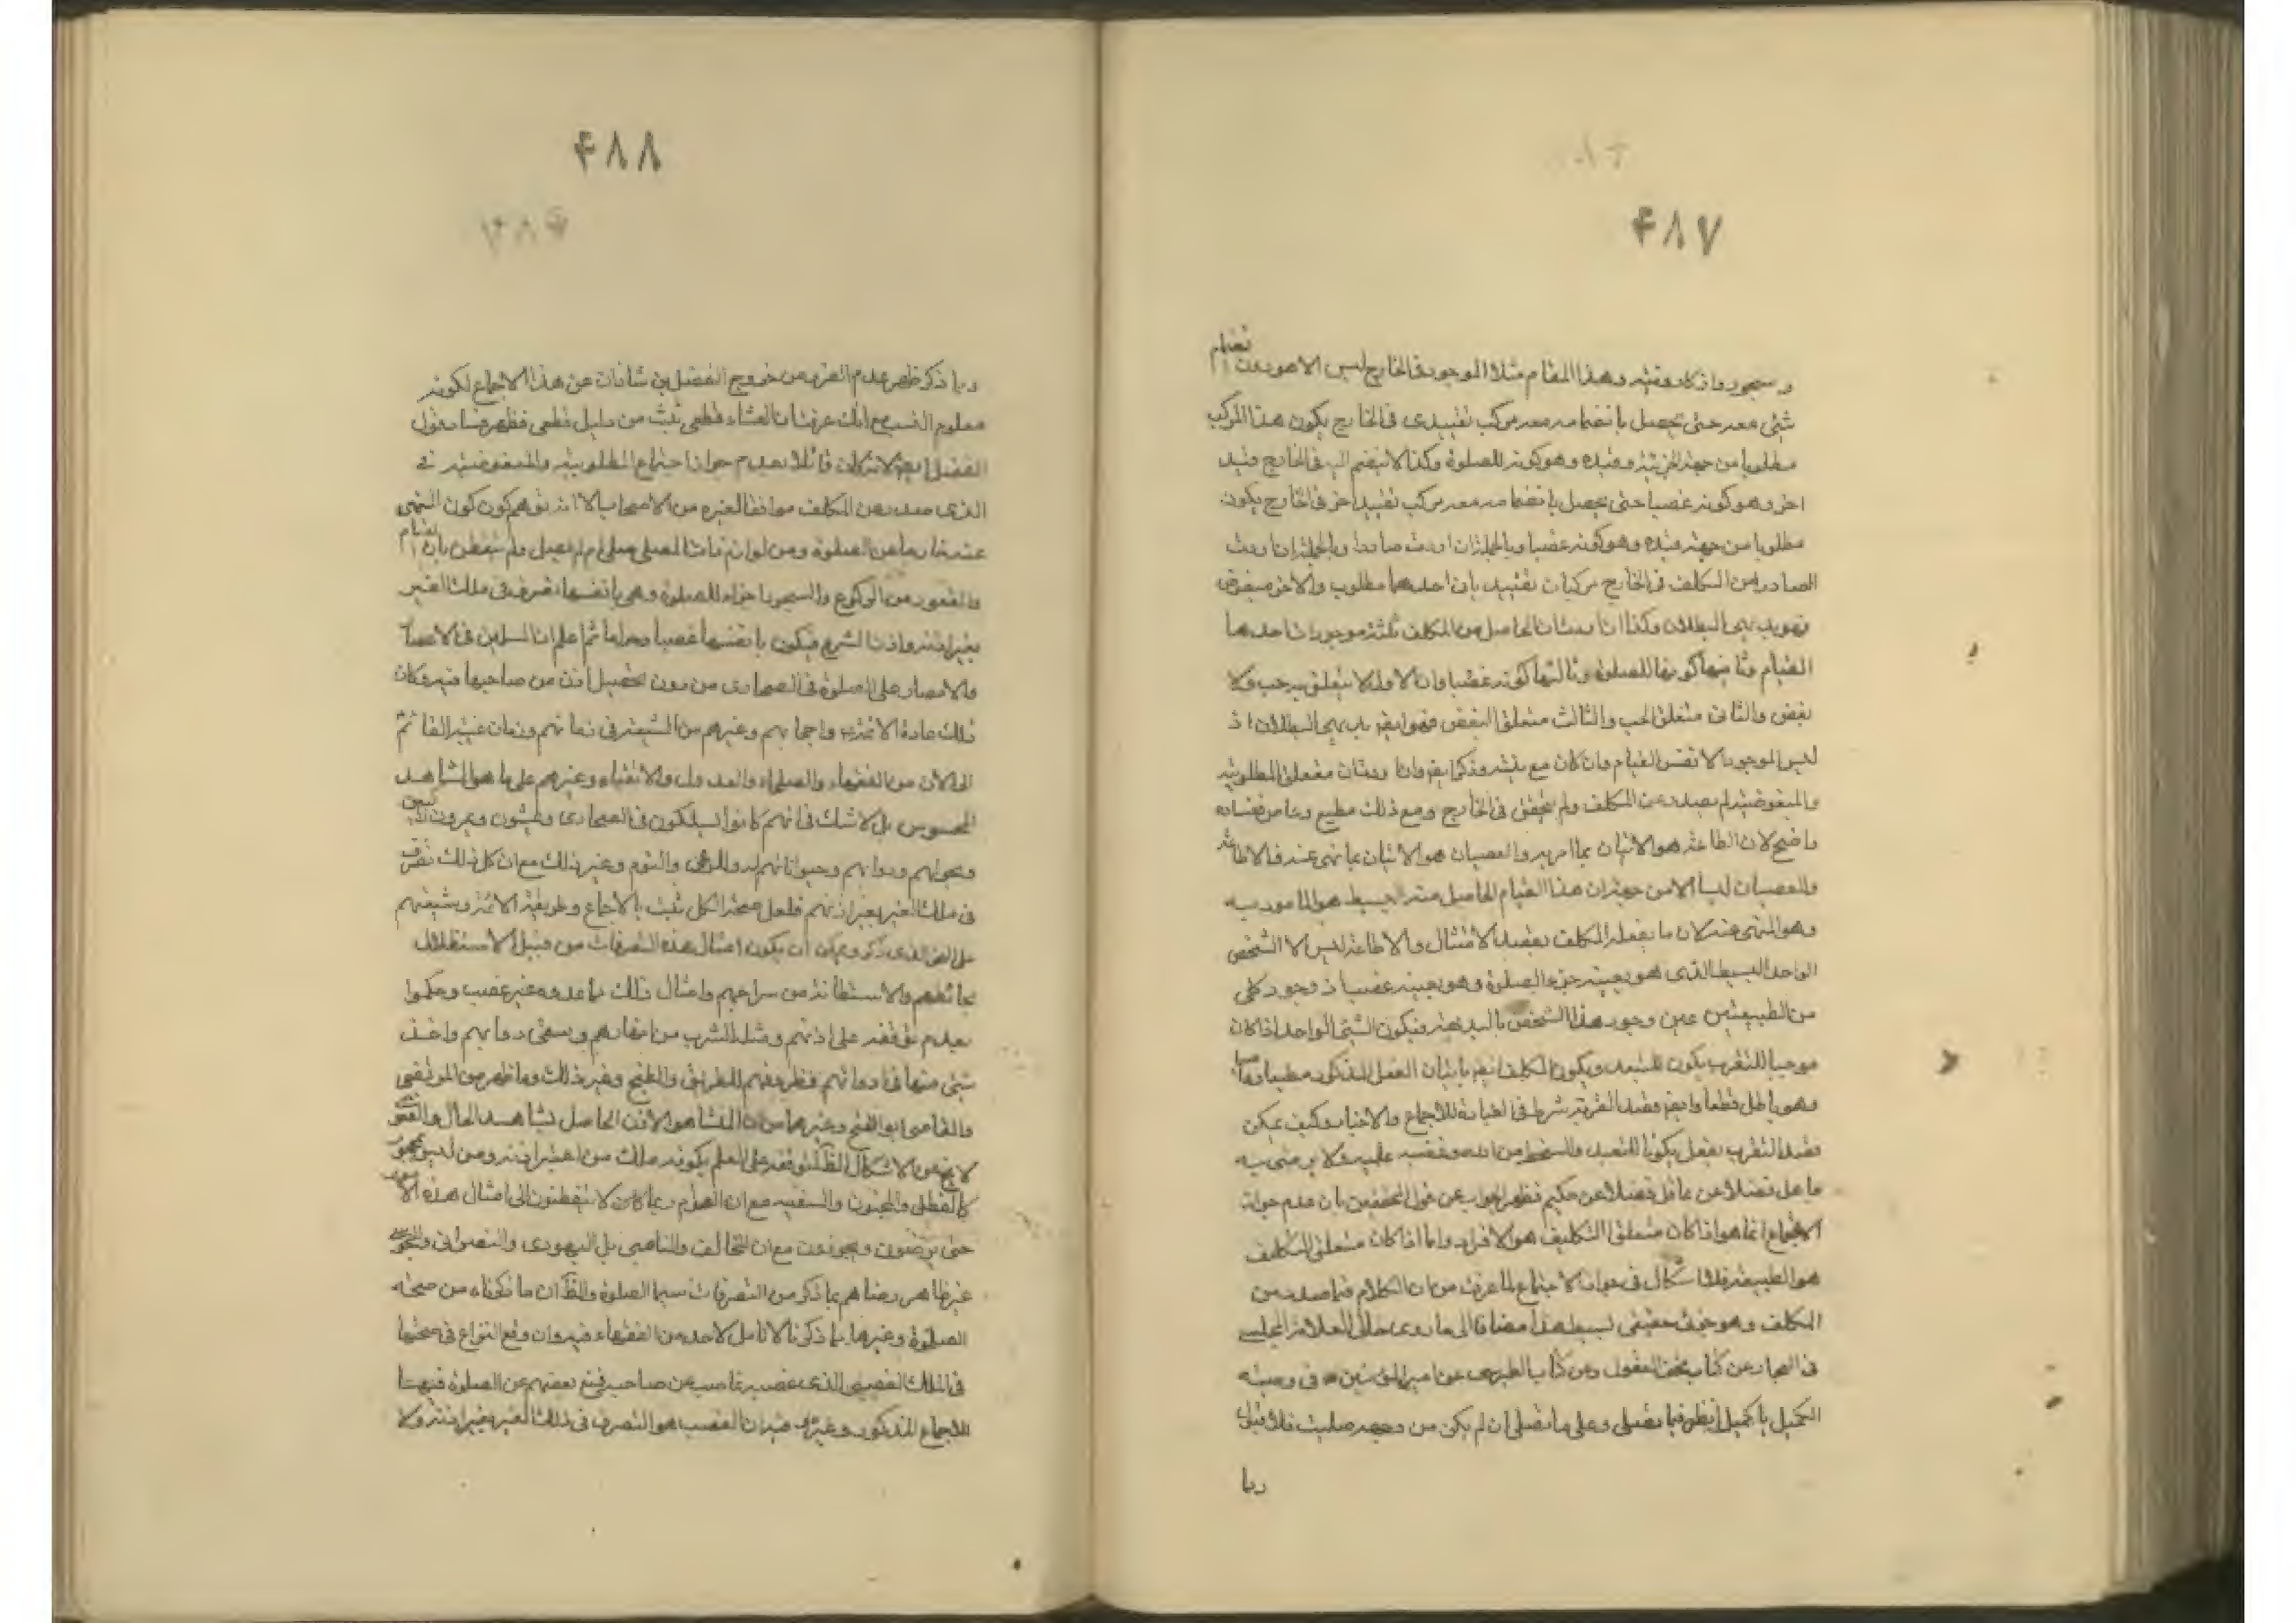 ۴۸۷
و سجوده واذكاره وقيه وهذا المقام مثلا الموجود في الخارج ليس الا هو بدون انضمام
شئ معه حتى يحصل بانضمامه معه مركب تقييدى في الخارج يكون هذا المركب
مطلوبا من جهة الجزئية وقيده وهو كونه للصلوة وكذا لا ينضم اليه في الخارج قيد
اخر وهو كونه غصبا حتى يحصل بانضمامه معه مركب تقييد اخر في الخارج يكون
مطلوبا من جهة قيده وهو كونه غصبا وبالجملة ان اردت
الصادر من المكلف في الخارج مركبات تقييد بان احدهما مطلوب والاخر مبغوض
فهو بديهى البطلان وكذا ان اردت ان الحاصل من المكلف ثلثة موجودات احدها
القيام وثانيها كونها للصلوة وثالثها كونه غصبا وان الاول لا يتعلق به حب ولا
بغض والثانى متعلق الحب والثالث متعلق البغض فهو ايضا بديهى البطلان اذ
ليس الموجود الا نفس القيام وان كان مع نيته وذكر ايضا وان اردت ان متعلق المطلوبية
والمبغوضية لم يصدر عن المكلف ولم يتحقق في الخارج ومع ذلك مطيع وعاص ففساده
واضح لان الطاعة هو الاتيان بما امر به والعصيان هو الاتيان بما نهى عنه فالاطاعة
والعصيان ليسا الا من جهة ان هذا القيام الحاصل منه البسيط هو المامور به
وهو المنهى عنه لان ما يفعله المكلف بقصد الامتثال والاطاعة ليس الا الشخص
الواحد البسيط الذى هو بعينه جزء الصلوة وهو بعينه غصب اذ وجود كلى
من الطبيعتين عين وجود هذا الشخص بالبديهة فيكون الشئ الواحد اذا كان
موجبا للتقرب يكون للتبعد ويكون المكلف ايضا باتيان الفعل المذكور مطيعا وعاصيا
وهو باطل قطعا وايضا قصد القربة شرط في العبادة للاجماع والاخبار وكيف يمكن
قصد التقرب بفعل يكون للتبعد والسخط من الله وغضبه عليه ولا يرضى به
عاقل فضلا عن حكيم فظهر الجواب عن قول المحققين بان عدم جواز
الاجتماع انما هو اذا كان متعلق التكليف هو الافراد واما اذا كان متعلق التكليف
هو الطبيعة فلا اشكال في جواز الاجتماع لما عرفت من ان الكلام فيما صدر من
المكلف وهو جزئى حقيقى بسيط هذا مضافا الى ما روى خالى العلامة المجلسى
في البحار عن كتاب تحف العقول وعن كتاب الطبرى عن امير المؤمنين في وصيته
لكميل يا كميل انظر فيما تصلى وعلى ما تصلى ان لم يكن من وجهه وحله فلا قبول
وبما
۴۸۸
وبما ذكر ظهر عدم الضرر من خروج الفضل بن شاذان عن هذا الاجماع لكونه
معلوم النسب مع انك عرفت ان الفساد قطعى ثبت من دليل قطعى فظهر فساد قول
الفضل ايضا لانه كان قائلا بعدم جواز اجتماع المطلوبية والمبغوضية في
الذى صدر عن المكلف موافقا لغيره من الاصحاب الا انه توهم كون كون المنهى
عنه خارجا عن الصلوة ومن لوازم ذات المصلى صلى ام لم يصل ولم يتفطن بان القيام
والقعود من الركوع والسجود اجزاء للصلوة وهى بانفسها تصرف في ملك الغير
بغير اذنه واذن الشرع فيكون بانفسها غصبا وحراما ثم اعلم ان المسلمين في الاعصار
والامصار على الصلوة في الصحارى من دون تحصيل اذن من صاحبها فيه وكان
ذلك عادة الائمة واصحابهم وغيرهم من الشيعة في زمانهم وزمان غيبة القائم
الى الان من الفقهاء والصلحاء والعدول والاتقياء وغيرهم على ما هو المشاهد
المحسوس بل لا شك في انهم كانوا يسلكون في الصحارى ويمشون ويمرون
ودوابهم وحيواناتهم والنوم وغير ذلك مع ان كل ذلك تصرف
في ملك الغير بغير اذنهم فلعل صحة الكل ثبت بالاجماع وطريقة الائمة وشيعتهم
على النحو الذى ذكر ويمكن ان يكون امثال هذه التصرفات من قبيل الاستظلال
بحائطهم والاستضائة من سراجهم وامثال ذلك مما عدوه غير غصب وحكموا
بعدم توقفه على اذنهم ومثل الشرب من انهارهم وسقى دوابهم واخذ
شئ منها في ادواتهم وظروفهم للطريق والطبخ وغير ذلك وما ظهر من المرتضى
والقاضى ابو الفتح وغيرهما من ان المنشا هو الاذن الحاصل بشاهد الحال والفحوى
لا يخ عن الاشكال لتوقفه على العلم بكونه ملك من اعتبر اذنه ومن ليس بمحجور
كالطفل والمجنون والسفيه مع ان العوام ربما كان لا يتفطنون الى امثال هذه الامور
حتى يرضون ويجوزون مع ان المخالف والناصبى بل اليهودى والنصرانى والمجوسى
غير ظاهر رضاهم بما ذكر من التصرفات سيما الصلوة والظ ان ما ذكرناه من صحة
الصلوة وغيرها مما ذكرنا لا تامل لاحد من الفقهاء فيه وان وقع النزاع في صحتها
في الملك الغصبى الذى غصبه غاصب من صاحبه فمنع بعضهم عن الصلوة فيها
للاجماع المذكور وغيره فيه ان الغصب هو التصرف في ذلك الغير بغير اذنه ولا